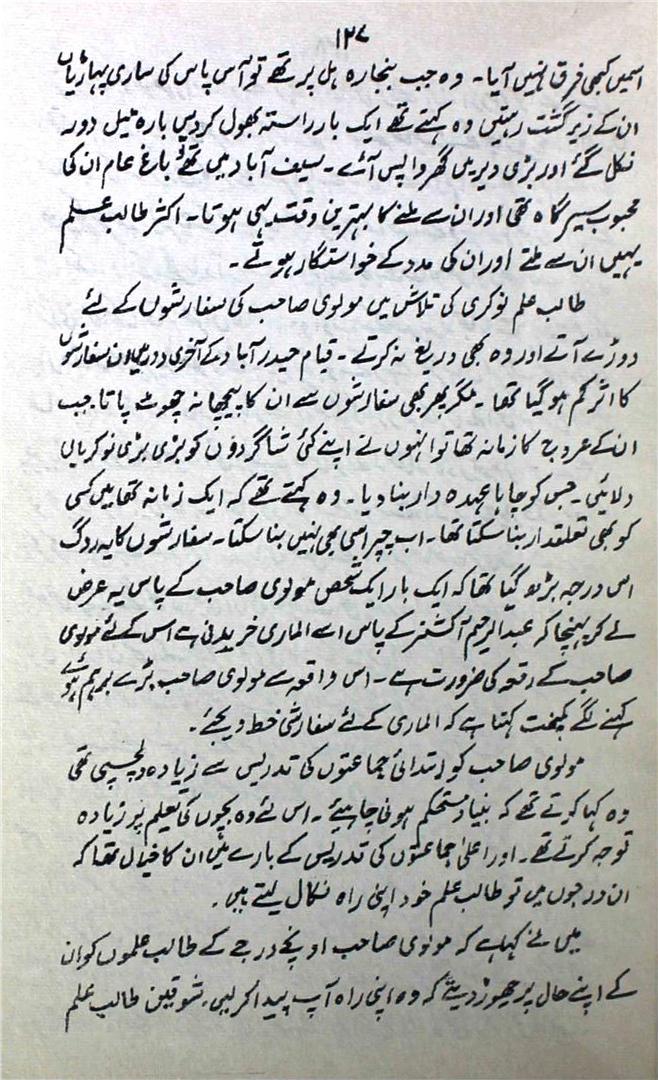 ۱۲۷
اسمیں کبھی فرق نہیں آیا۔ وہ جب بنجارہ ہل پر تھے تو آس پاس کی ساری پہاڑیاں
ان کے زیر گشت رہتیں وہ کہتے تھے ایک بار راستہ بھول کر دس بارہ میل دور
نکل گئے اور بڑی دیر میں گھر واپس آئے۔ سیف آباد میں تھے باغ عام ان کی
محبوب سیر گاہ تھی اور ان سے ملنے کا بہترین وقت یہی ہوتا۔ اکثر طالب علم
یہیں ان سے ملتے اور ان کی مدد کے خواستگار ہوتے۔
طالب علم نوکری کی تلاش میں مولوی صاحب کی سفارشوں کے لئے
دوڑے آتے اور وہ بھی دریغ نہ کرتے۔ قیام حیدرآباد کے آخری دور میں ان سفارشوں
کا اثر کم ہو گیا تھا۔ مگر پھر بھی سفارشوں سے ان کا پیچھا نہ چھوٹ پاتا جب
ان کے عروج کا زمانہ تھا تو انہوں نے اپنے کئی شاگردوں کو بڑی بڑی نوکریاں
دلائیں۔ جس کو چاہا عہدہ دار بنا دیا۔ وہ کہتے تھے کہ ایک زمانہ تھا میں کسی
کو بھی تعلقدار بنا سکتا تھا۔ اب چپراسی بھی نہیں بنا سکتا۔ سفارشوں کا یہ روگ
اس درجہ بڑھ گیا تھا کہ ایک بار ایک شخص مولوی صاحب کے پاس یہ عرض
لے کر پہنچا کہ عبدالرحیم آکشنر کے پاس اسے الماری خریدنی ہے اس کے لئے مولوی
صاحب کے رقعہ کی ضرورت ہے۔ اس واقعہ سے مولوی صاحب بڑے برہم ہوئے
کہنے لگے کمبخت کہتا ہے کہ الماری کے لئے سفارشی خط دیجئے۔
مولوی صاحب کو ابتدائی جماعتوں کی تدریس سے زیادہ دلچسپی تھی
وہ کہا کرتے تھے کہ بنیاد مستحکم ہونی چاہیئے۔ اس لئے وہ بچوں کی تعلیم پر زیادہ
توجہ کرتے تھے۔ اور اعلیٰ جماعتوں کی تدریس کے بارے میں ان کا خیال تھا کہ
ان درجوں میں تو طالب علم خود اپنی راہ نکال لیتے ہیں۔
میں نے کہا ہے کہ مولوی صاحب اونچے درجے کے طالب علموں کو ان
کے اپنے حال پر چھوڑ دیتے کہ وہ اپنی راہ آپ پیدا کر لیں، شوقین طالب علم